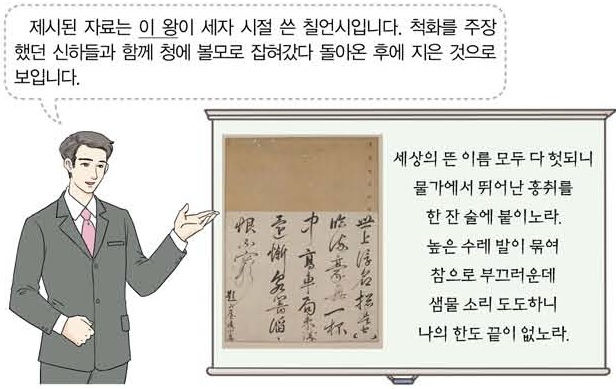 제시된 자료는 이 왕이 세자 시절 쓴 칠언시입니다. 척화를 주장
했던 신하들과 함께 청에 볼모로 잡혀갔다 돌아온 후에 지은 것으로
보입니다.
世上浮名摠是
豪興一杯
中高車
還慚
恨不窮
세상의 뜬 이름 모두 다 헛되니
물가에서 뛰어난 흥취를
한 잔 술에 붙이노라.
높은 수레 발이 묶여
참으로 부끄러운데
샘물 소리 도도하니
나의 한도 끝이 없노라.